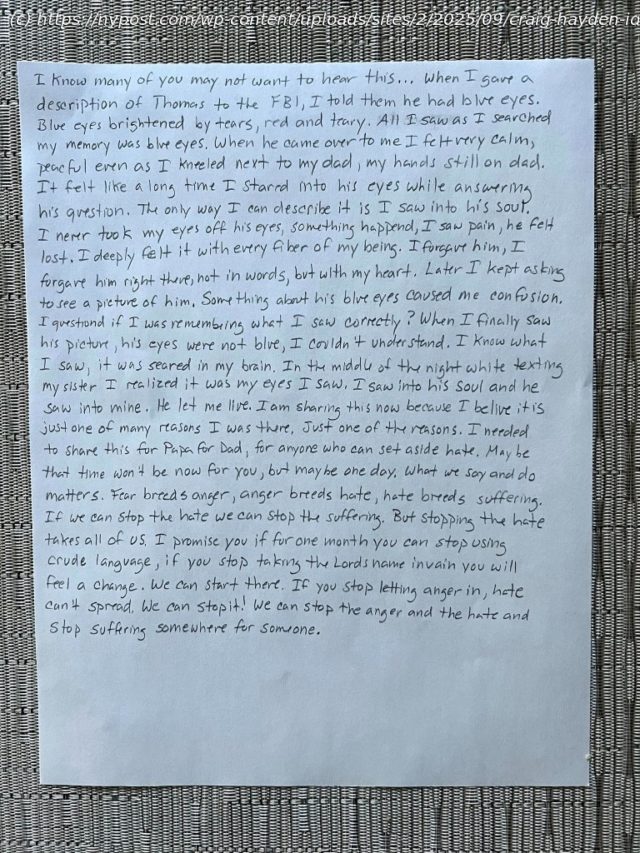 (c) https://nypost.com/wp-content/uploads/sites/2/2025/09/craig-hayden-id
I know many of you may not want to hear this... When I gave a
description of Thomas to the FBI, I told them he had blue eyes.
Blue eyes brightened by tears, red and teary. All I saw as I searched
my memory was blue eyes. When he came over to me I felt very calm,
peaceful even as I kneeled next to my dad, my hands still on dad.
It felt like a long time I starred into his eyes while answering
his question. The only way I can describe it is I saw into his soul.
I never took my eyes off his eyes, something happend, I saw pain, he felt
lost. I deeply felt it with every fiber of my being. I forgave him, I
forgave him right there, not in words, but with my heart. Later I kept asking
to see a picture of him. Something about his blue eyes caused me confusion.
I questiond if I was remembering what I saw correctly? When I finally saw
his picture, his eyes were not blue, I couldn't understand. I know what
I saw, it was seared in my brain. In the middle of the night white texting
my sister I realized it was my eyes I saw. I saw into his soul and he
saw into mine. He let me live. I am sharing this now because I belive it is
just one of many reasons I was there. Just one of the reasons. I needed
to share this for Papa for Dad, for anyone who can set aside hate. Maybe
that time won't be now for you, but maybe one day. What we say and do
matters. Fear breeds anger, anger breeds hate, hate breeds suffering.
If we can stop the hate we can stop the suffering. But stopping the hate
takes all of us. I promise you if for one month you can stop using
crude language, if you stop taking the Lords name in vain you will
feel a change. We can start there. If you stop letting anger in, hate
can't spread. We can stop it! We can stop the anger and the hate and
stop suffering somewhere for someone.